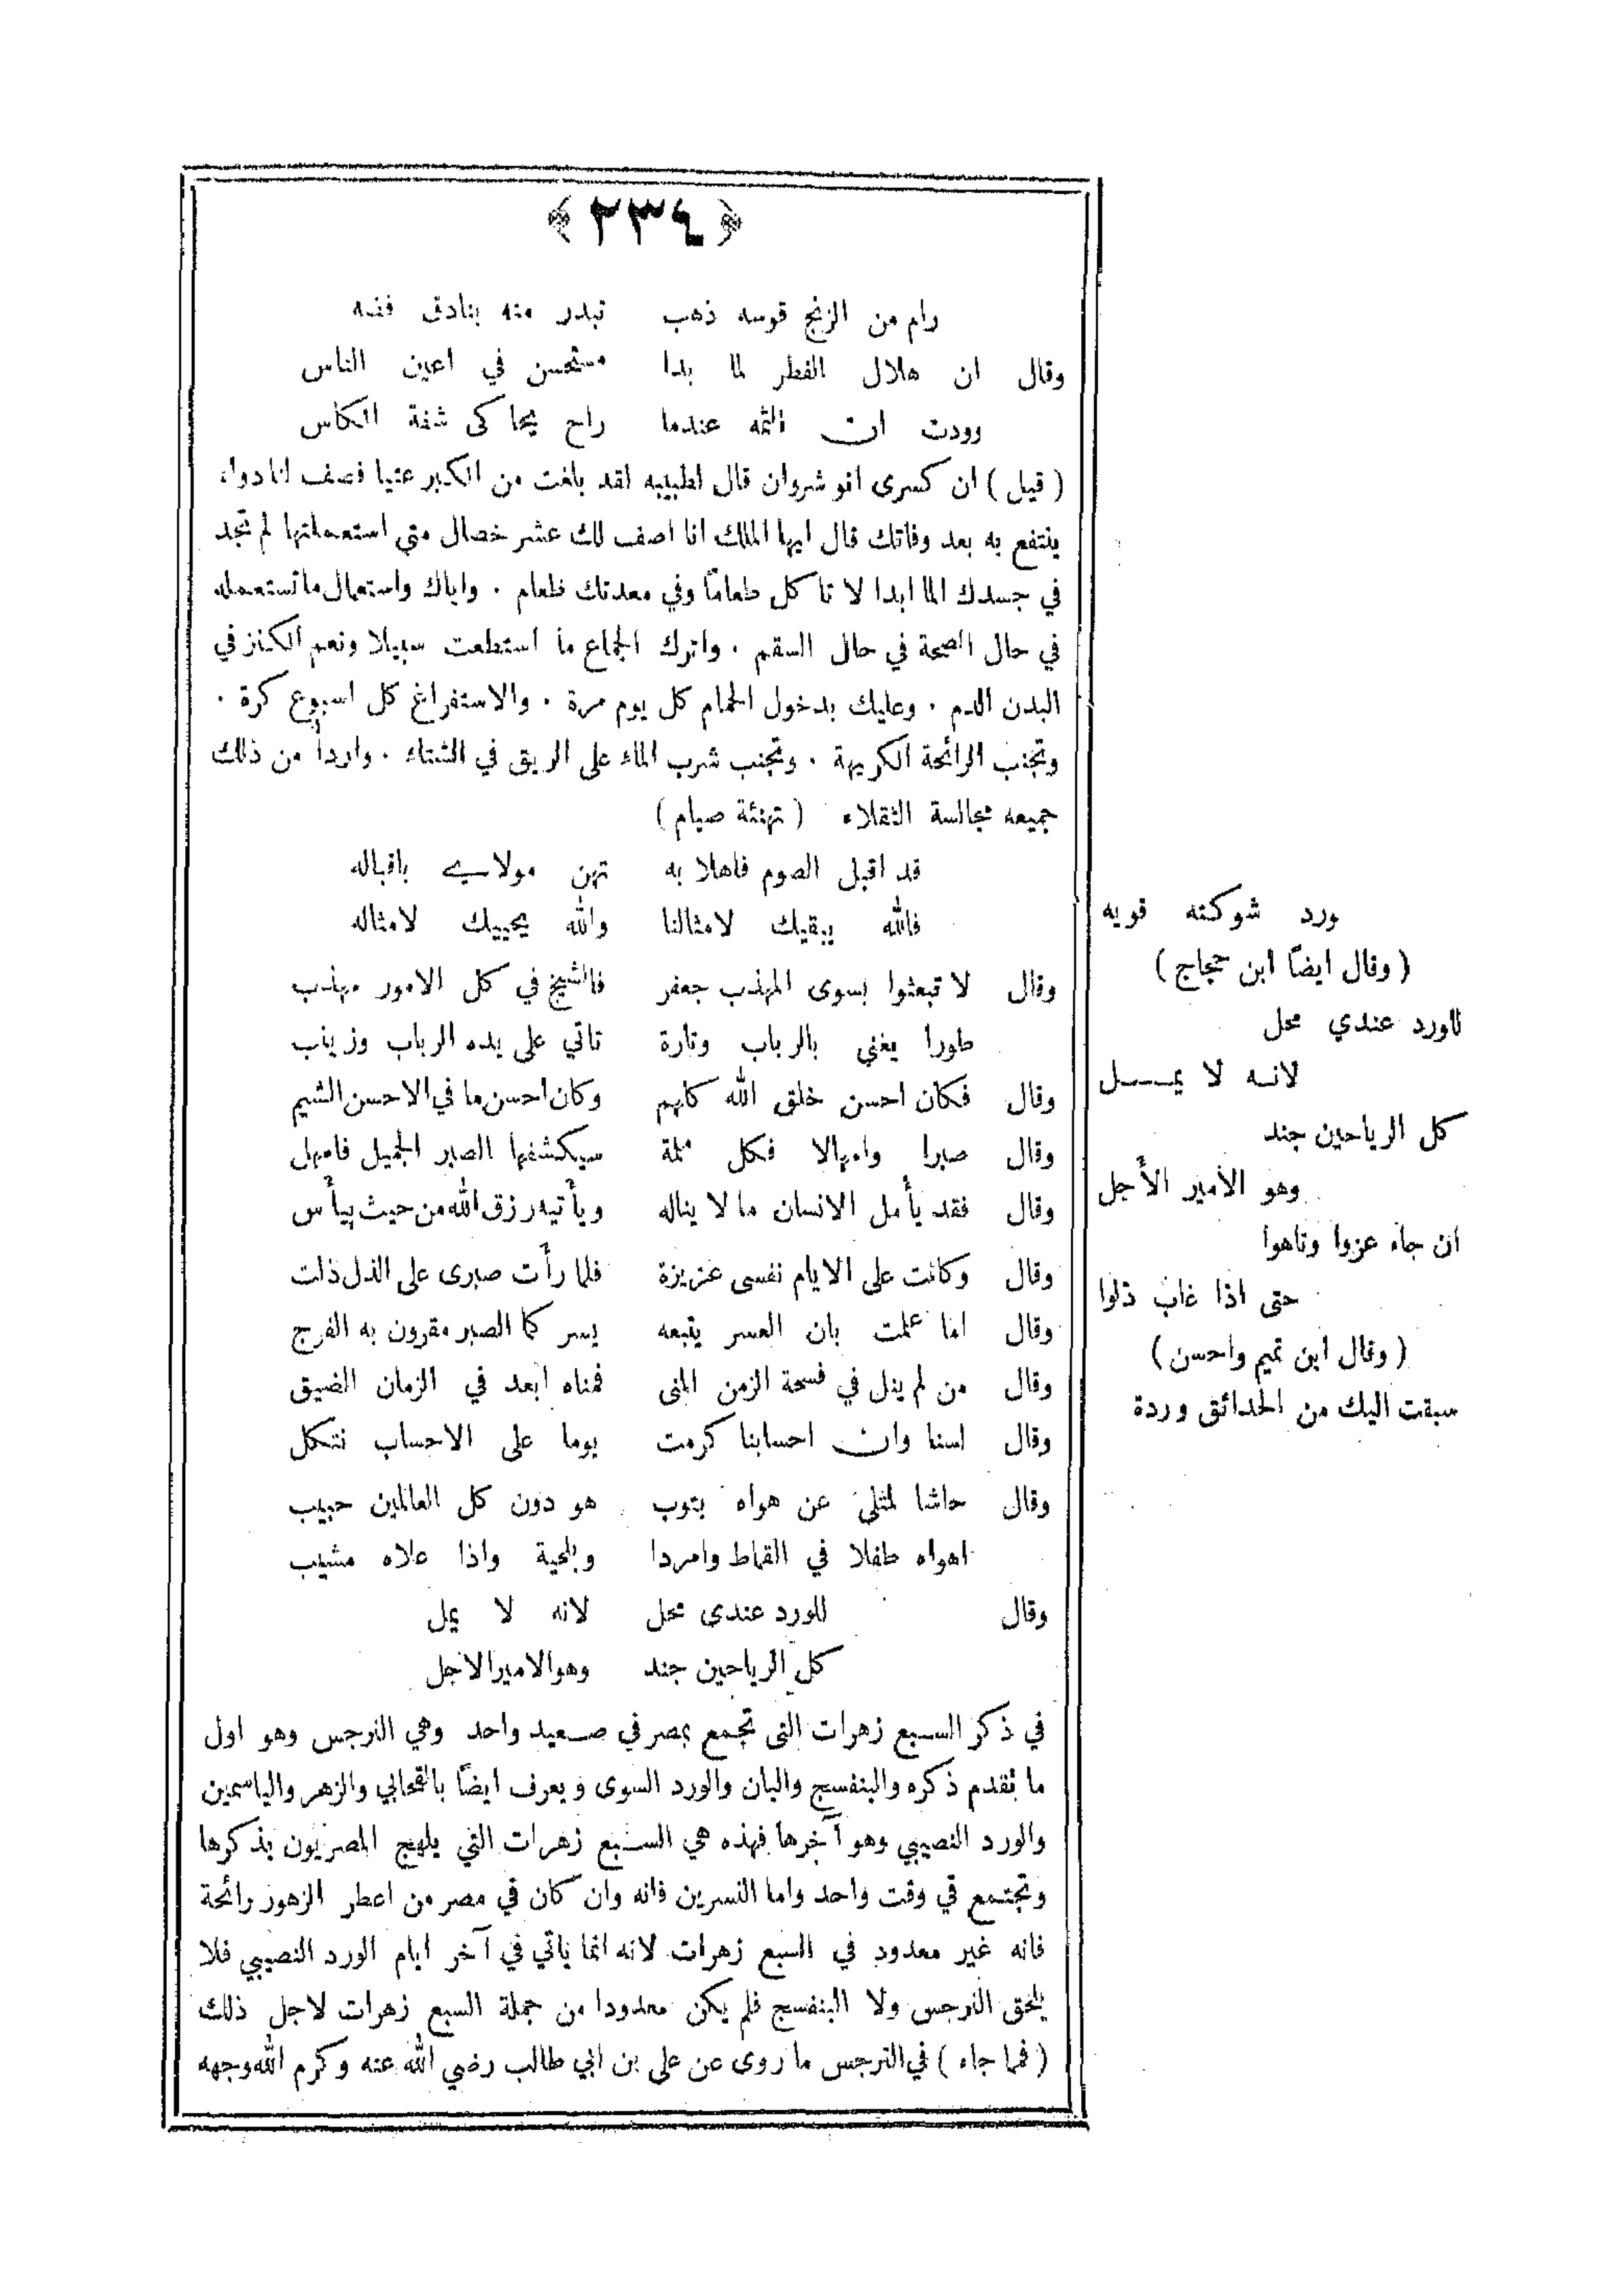 ﴿ ٢٣٤ ﴾
رام من الزنج قوسه ذهب تبدر منه بنادق فضه
وقال ان هلال الفطر لما بدا مستحسن في اعين الناس
وودت ان الثمه عندما راح يحاكى شفة الكاس
( قيل ) ان كسرى انو شروان قال لطبيبه لقد بلغت من الكبر عتيا فصف لنا دواء
ينتفع به بعد وفاتك قال ايها الملك انا اصف لك عشر خصال متى استعملتها لم تجد
في جسدك الما ابدا لا تاكل طعاماً وفي معدتك طعام ٠ واياك واستعمال ما تستعمله
في حال الصحة في حال السقم ٠ واترك الجماع ما استطعت سبيلا ونعم الكنز في
البدن الدم ٠ وعليك بدخول الحمام كل يوم مرة ٠ والاستفراغ كل اسبوع كرة ٠
وتجنب الرائحة الكريهة ٠ وتجنب شرب الماء على الريق في الشتاء ٠ واردأ من ذلك
جميعه مجالسة الثقلاء ( تهنئة صيام )
قد اقبل الصوم فاهلا به تهن مولاي باقباله
فالله يبقيك لامثالنا والله يحييك لامثاله
وقال لا تبعثوا بسوى المهذب جعفر فالشيخ في كل الامور مهذب
طورا يغني بالرباب وتارة تاتي على يده الرباب وزينب
وقال فكان احسن خلق الله كلهم وكان احسن ما في الاحسن الشيم
وقال صبرا وامهالا فكل ملمة سيكشفها الصبر الجميل فامهل
وقال فقد يأمل الانسان ما لا يناله ويأتيه رزق الله من حيث ييأس
وقال وكانت على الايام نفسى عزيزة فلما رأت صبرى على الذل ذلت
وقال اما علمت بان العسر يتبعه يسر كما الصبر مقرون به الفرج
وقال من لم ينل في فسحة الزمن المنى فمناه ابعد في الزمان الضيق
وقال لسنا وان احسابنا كرمت يوما على الاحساب نتكل
وقال حاشا لمثلى عن هواه يتوب هو دون كل العالمين حبيب
اهواه طفلا في القماط وامردا وبلحية واذا علاه مشيب
وقال للورد عندى محل لانه لا يمل
كل الرياحين جند وهو الامير الاجل
في ذكر السبع زهرات التى تجمع بمصر في صعيد واحد وهي النرجس وهو اول
ما تقدم ذكره والبنفسج والبان والورد السوى ويعرف ايضاً بالقحابي والزهر والياسمين
والورد النصيبي وهو آخرها فهذه هي السبع زهرات التي يلهج المصريون بذكرها
وتجتمع في وقت واحد واما النسرين فانه وان كان في مصر من اعطر الزهور رائحة
فانه غير معدود في السبع زهرات لانه انما ياتي في آخر ايام الورد النصيبي فلا
يلحق النرجس ولا البنفسج فلم يكن معدودا من جملة السبع زهرات لاجل ذلك
( فما جاء ) في النرجس ما روى عن على بن ابي طالب رضي الله عنه وكرم الله وجهه
ورد شوكته قويه
( وقال ايضاً ابن حجاج )
للورد عندي محل
لانه لا يمل
كل الرياحين جند
وهو الامير الأجل
ان جاء عزوا وتاهوا
حتى اذا غاب ذلوا
( وقال ابن تميم واحسن )
سبقت اليك من الحدائق وردة